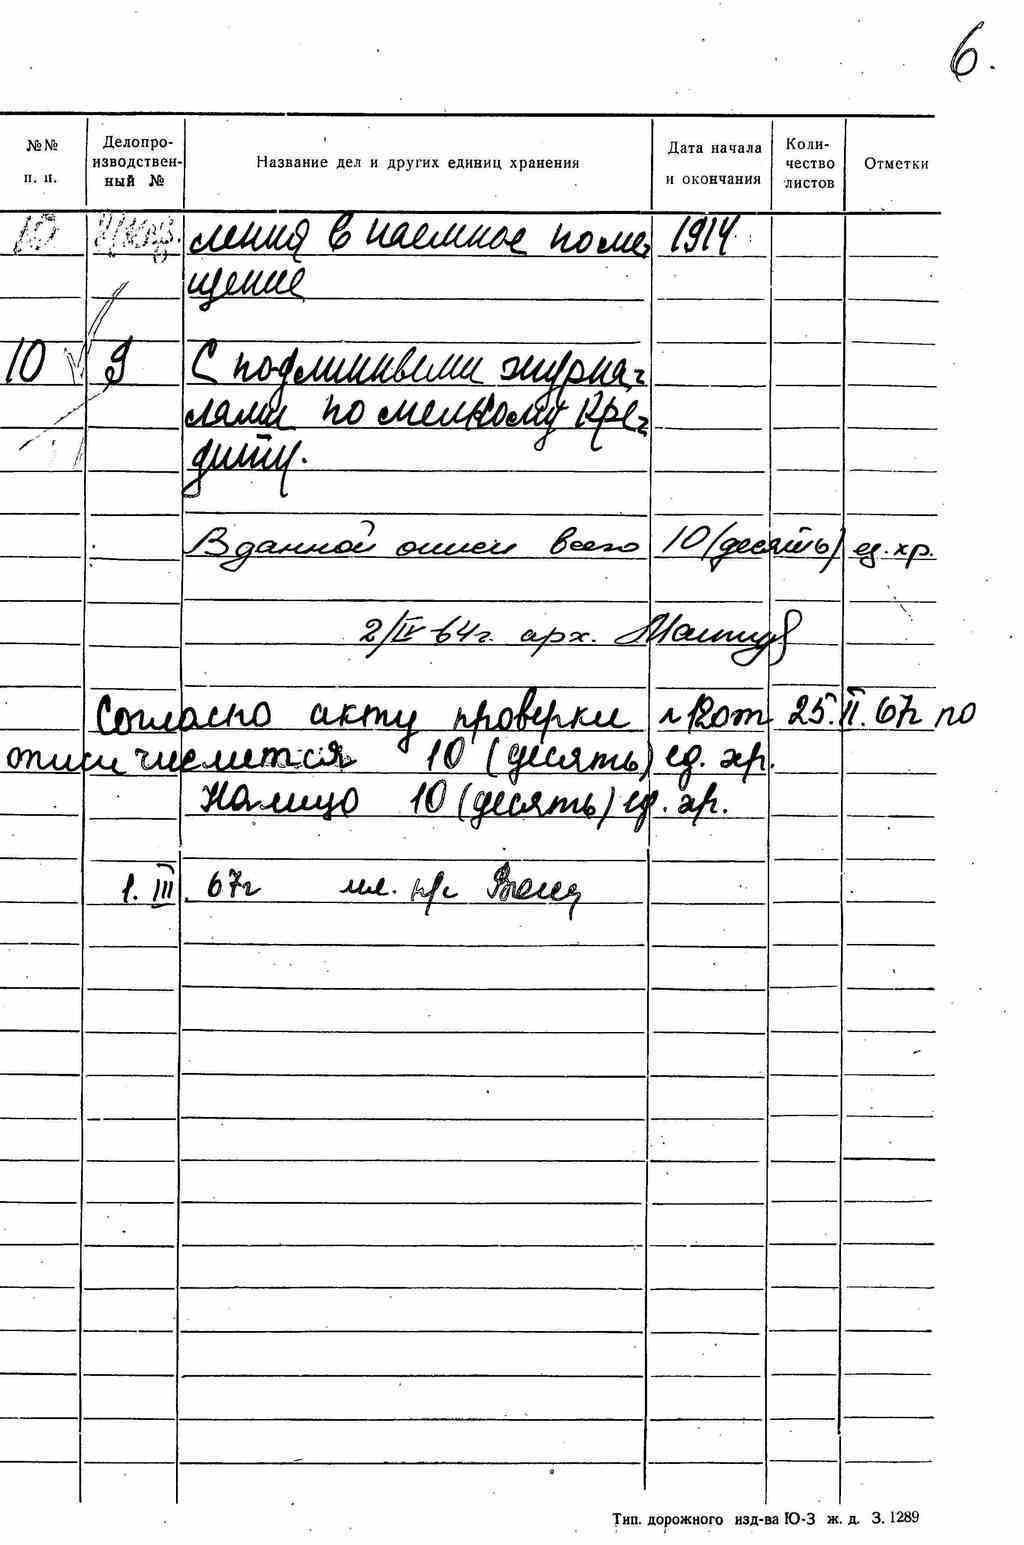 6.
№№ п. п.
Делопро-
изводствен-
ный №
Название дел и других единиц хранения
Дата начала
и окончания
Коли-
чество
листов
Отметки
ления в наемное поме- 1914
щение
10 9 С подлинными журна-
лами по мелкому кре-
диту.
В данной описи всего 10 (десять) ед. хр.
2/IV-64г. арх.
Согласно акту проверки от 25.II.67г по
описи числится 10 (десять) ед. хр.
Налицо 10 (десять) ед. хр.
1.III.67г мл. н/с
Тип. дорожного изд-ва Ю-З ж. д. З. 1289